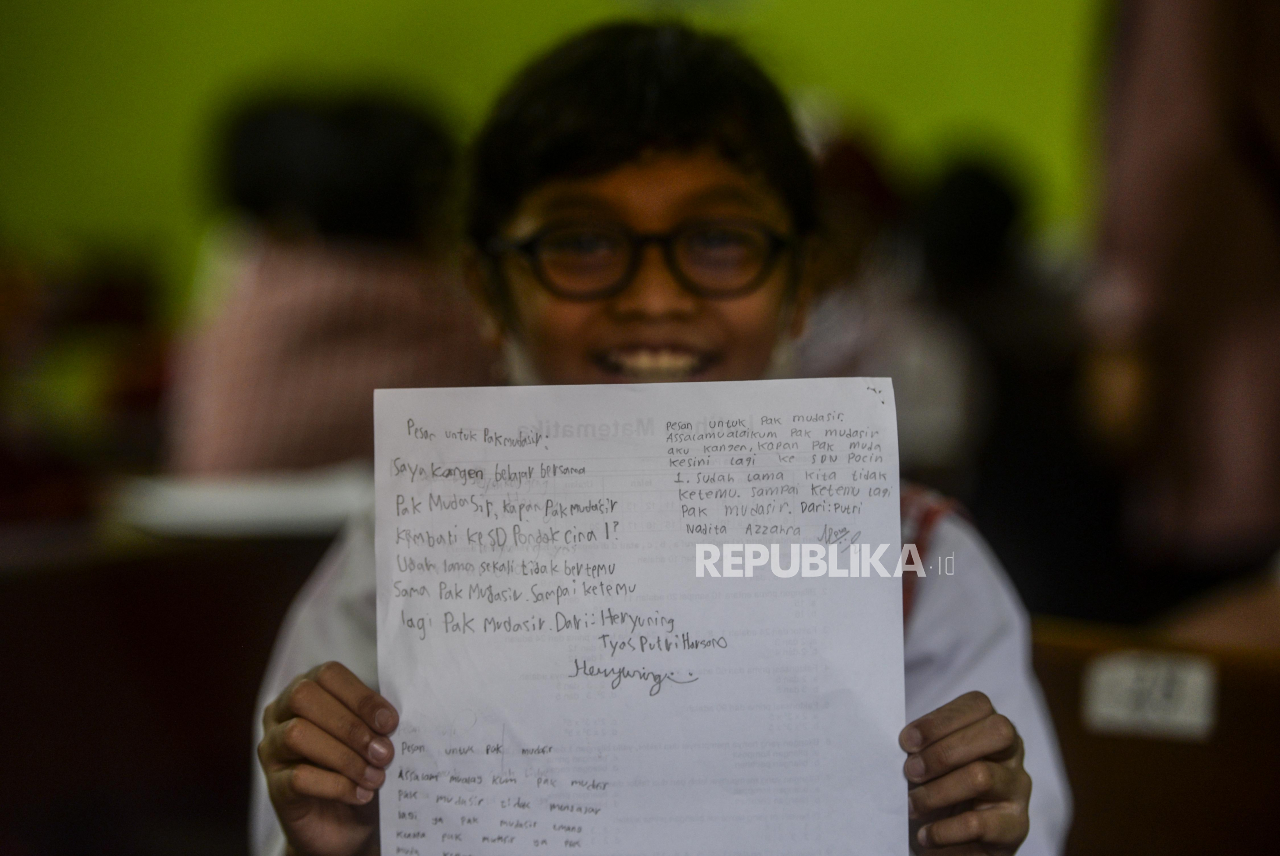 Pesan untuk Pak mudasir.
Saya kangen belajar bersama
Pak Mudasir, kapan Pak mudasir
kembali ke SD Pondok cina 1?
Udah lama sekali tidak bertemu
Sama Pak Mudasir. Sampai ketemu
lagi Pak Mudasir. Dari: Heryuning
Tyas Putri Harsono
Heryuning
Pesan untuk Pak mudasir.
Assalamualaikum Pak mudasir
aku kangen, kapan Pak muda
kesini lagi ke SDN Pocin
1. Sudah lama kita tidak
ketemu. Sampai ketemu lagi
Pak mudasir. Dari: Putri
Nadita Azzahra
REPUBLIKA.id
Pesan untuk Pak
kum pak
pak mudasir tidak
lagi ya pak mudasir
pak ya pak
Matematika